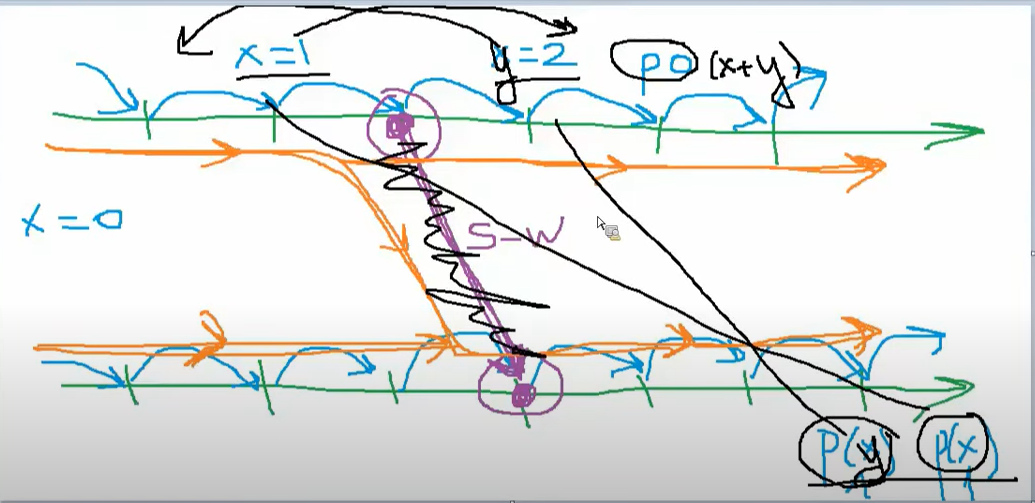 x=1 y=2 p0 (x+y)
x=0
S-W
P(y) P(x)